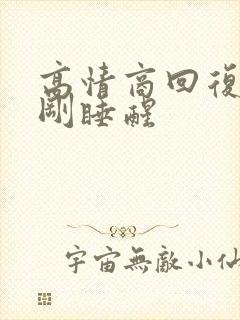 高情商回復
剛睡醒
宇宙無敵小仙